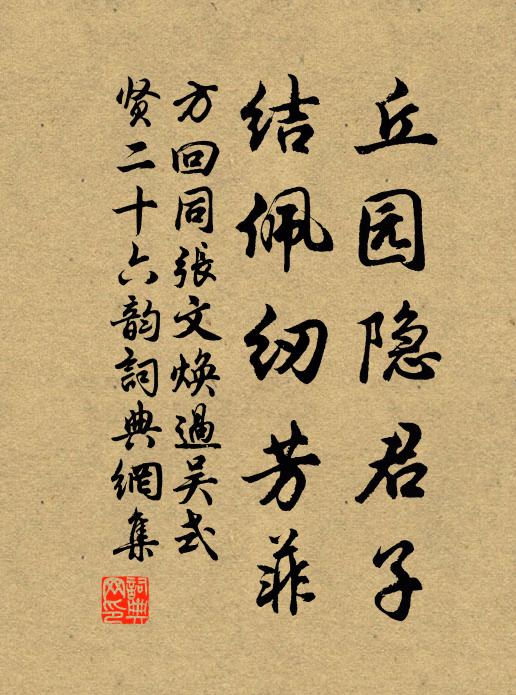 丘园隐君子
结佩纫芳菲
方回同張文焕過吴式
贤二十六韵詞典網集
詞典網印